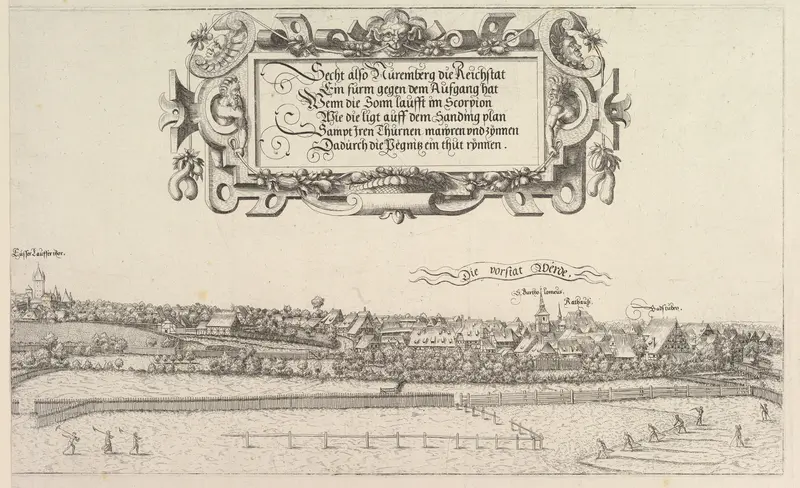 Secht also Nuremberg die Reichstat
Ein furm gegen dem Aufgang hat
Wenn die Sonn laufft im Scorpion
Wie die ligt auff dem Sanding plan
Sampt Iren Thurnen mawren vnd zynnen
Dadurch die Pegnitz ein thut rynnen.
Die vorstat Werde.
S. Bartholomeus.
Rathauß.